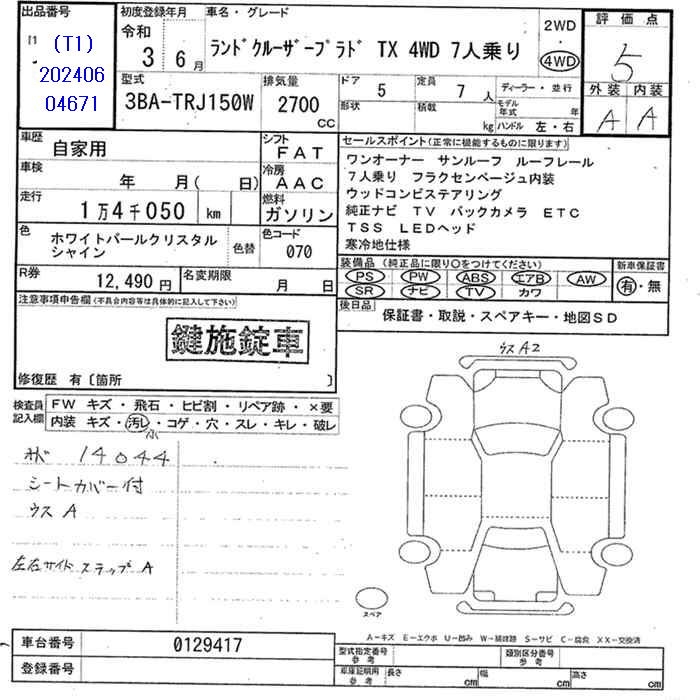 出品番号
(T1)
202406
04671
初度登録年月
令和
3 6月
車名・グレード
ランドクルーザープラド TX 4WD 7人乗り
2WD
4WD
評価点
5
外装 内装
A A
型式
3BA-TRJ150W
排気量
2700
CC
ドア 5
形状
定員 7 人
積載 kg
ディーラー・並行
モデル年式 年
ハンドル 左・右
車歴
自家用
車検
年 月( 日)
走行
1万4千050 km
シフト
FAT
冷房
AAC
燃料
ガソリン
セールスポイント(正常に機能するものに限ります)
ワンオーナー サンルーフ ルーフレール
7人乗り フラクセンベージュ内装
ウッドコンビステアリング
純正ナビ TV バックカメラ ETC
TSS LEDヘッド
寒冷地仕様
色
ホワイトパールクリスタル
シャイン
色替
色コード
070
R券
12,490円
名変期限
月 日
装備品(純正品に限り○をつけてください)
PS PW ABS エアB AW
SR ナビ TV カワ
新車保証書
有・無
注意事項申告欄(不具合内容等は具体的に記入して下さい)
鍵施錠車
修復歴 有〔箇所 〕
後日品
保証書・取説・スペアキー・地図SD
検査員
記入欄
FW キズ・飛石・ヒビ割・リペア跡・×要
内装 キズ・汚レ・コゲ・穴・スレ・キレ・破レ
小
14044
シートカバー付
ウス A
左右サイドステップ A
ウス A2
スペア
A－キズ E－エクボ U－凹み W－補修跡 S－サビ C－腐食 XX－交換済
車台番号
0129417
登録番号
型式指定番号
参考
類別区分番号
参考
車庫証明用
参考
長さ cm
幅 cm
高さ cm